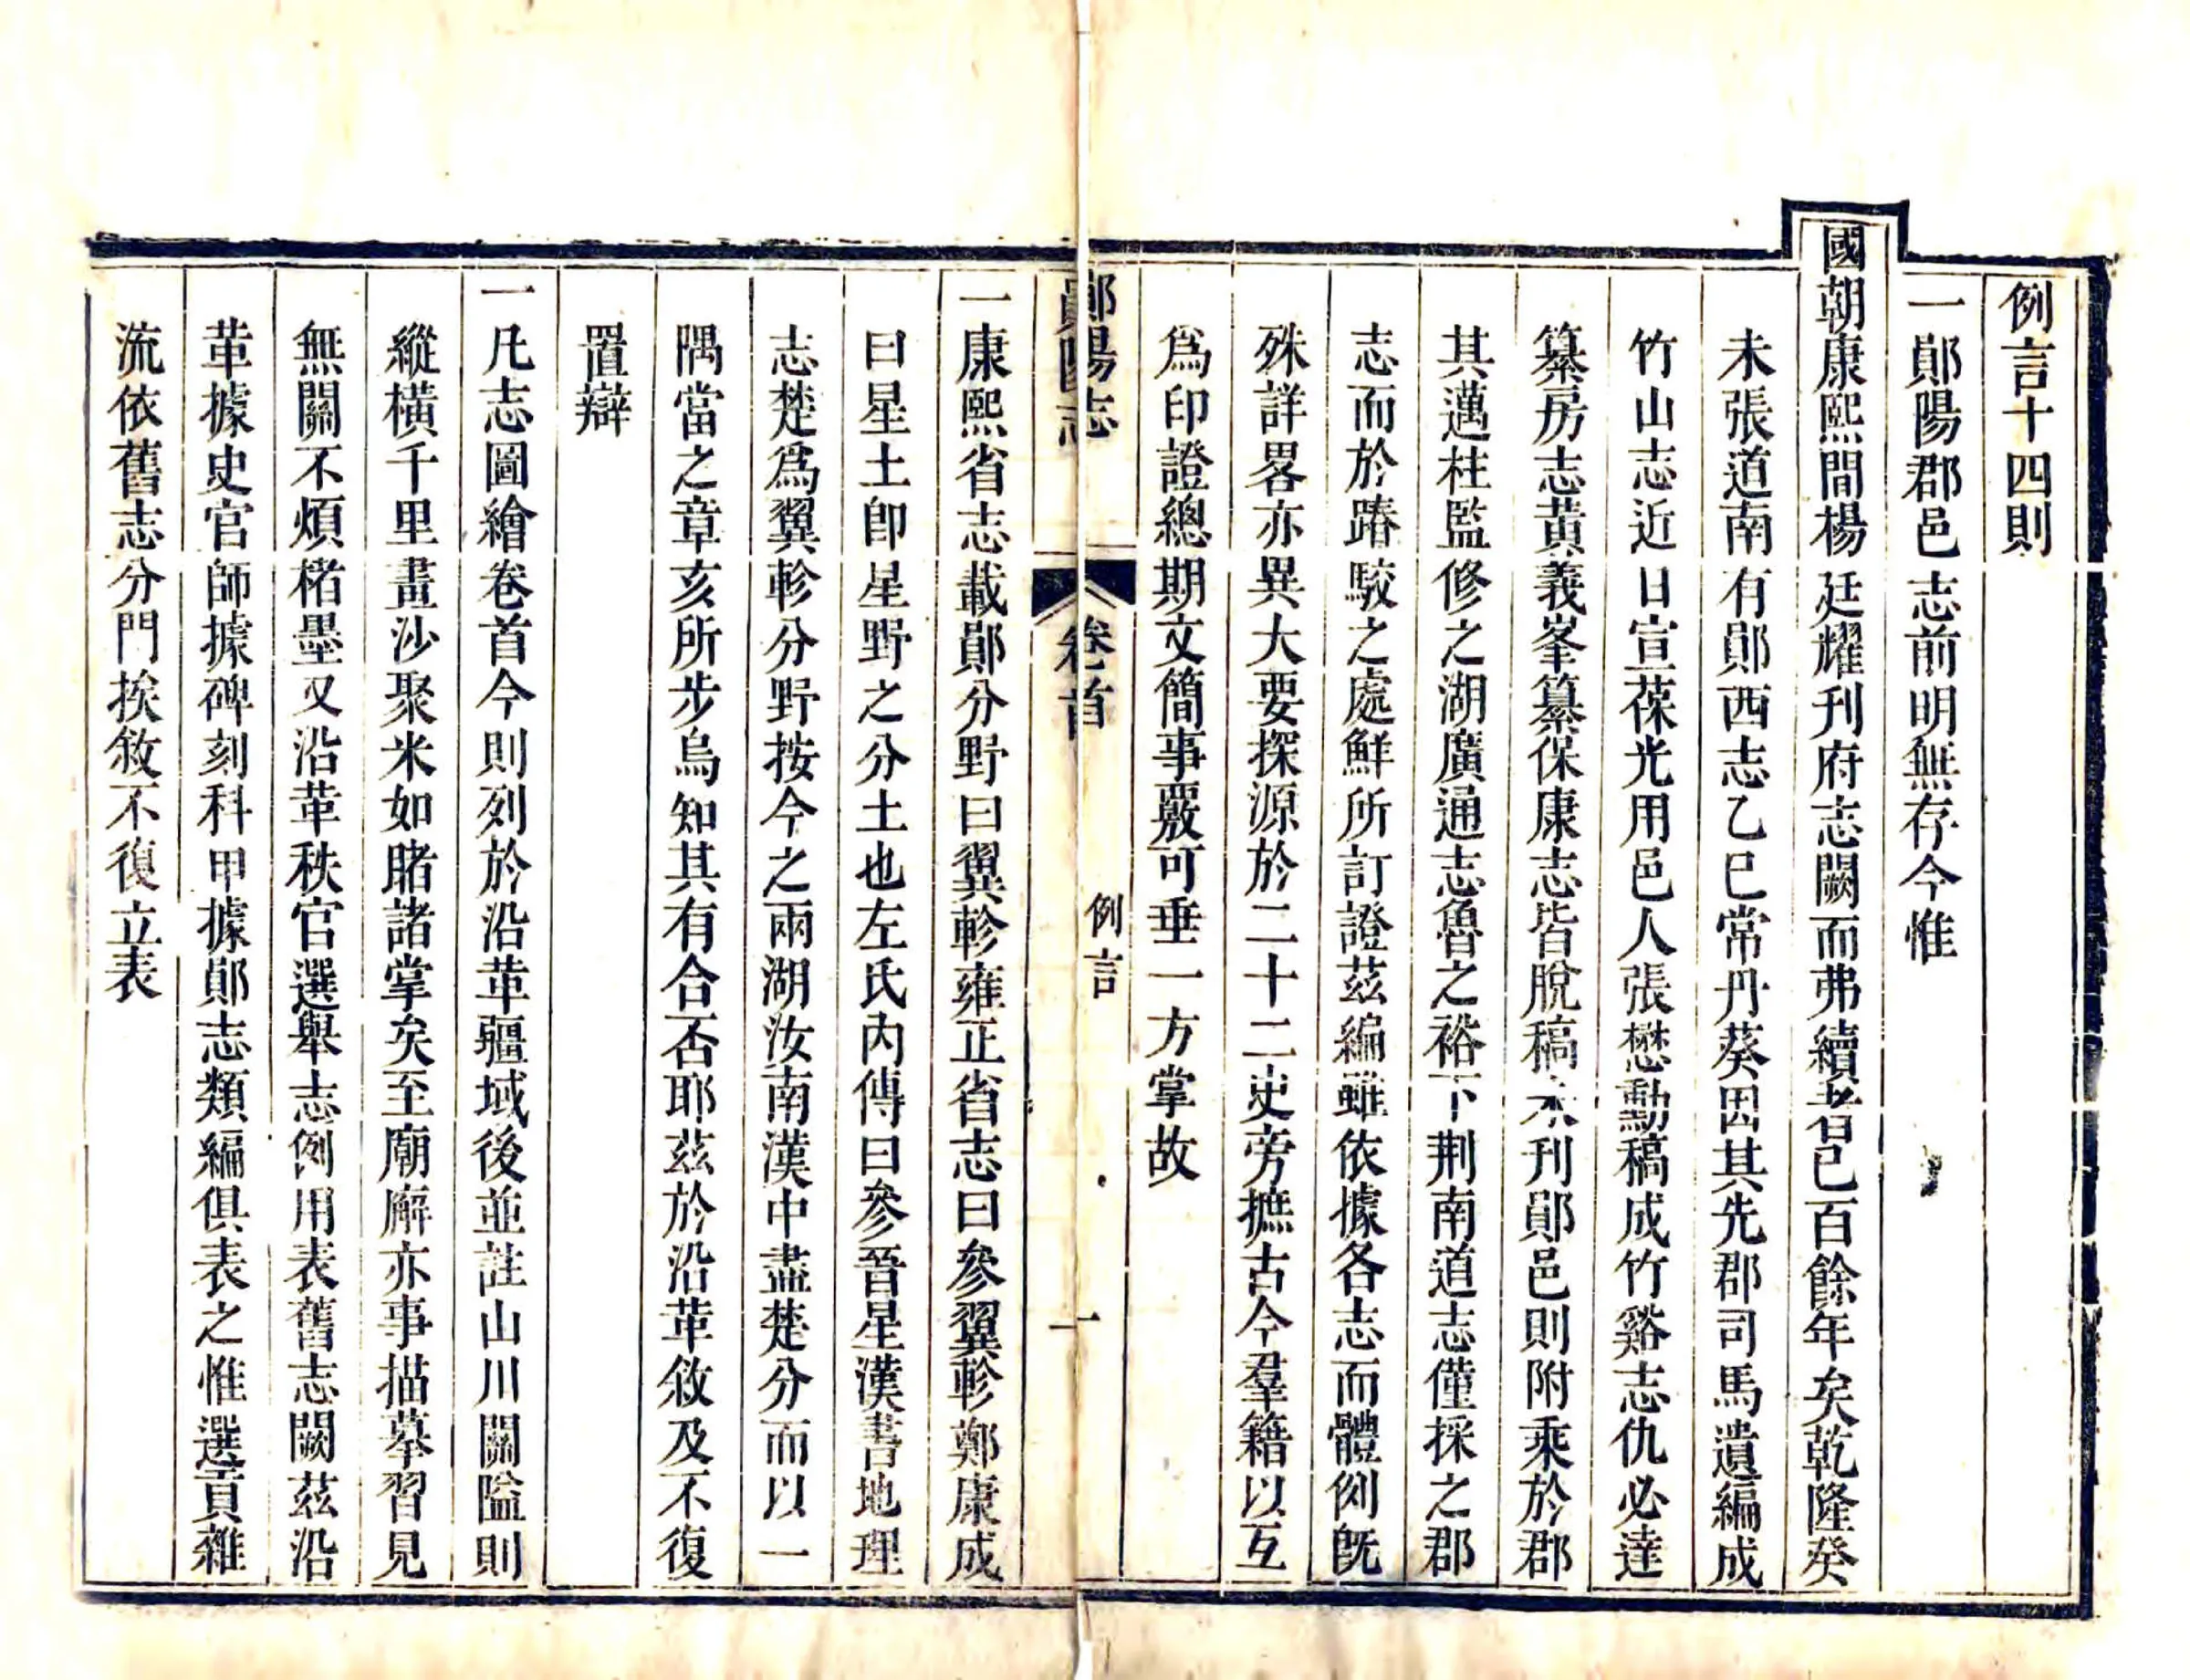 例言十四則
一鄖陽郡邑志前明無存今惟
國朝康熙間楊廷耀刊府志闕而弗續者已百餘年矣乾隆癸
未張道南有鄖西志乙巳常丹葵因其先郡司馬遺編成
竹山志近日宣葆光用邑人張懋勳稿成竹谿志仇必達
纂房志黃義峯纂保康志皆脫稿未刊鄖邑則附乘於郡
其邁柱監修之湖廣通志魯之裕下荆南道志僅採之郡
志而於踳駮之處鮮所訂證茲編雖依據各志而體例旣
殊詳畧亦異大要探源於二十二史旁摭古今羣籍以互
爲印證總期文簡事覈可垂一方掌故
鄖陽志 卷首 例言 一
一康熙省志載鄖分野曰翼軫雍正省志曰參翼軫鄭康成
曰星土卽星野之分土也左氏內傳曰參晉星漢書地理
志楚爲翼軫分野按今之兩湖汝南漢中盡楚分而以一
隅當之章亥所步烏知其有合否耶茲於沿革敘及不復
置辯
一凡志圖繪卷首今則列於沿革疆域後並註山川關隘則
縱橫千里畫沙聚米如睹諸掌矣至廟廨亦事描摹習見
無關不煩楮墨又沿革秩官選舉志例用表舊志闕茲沿
革據史官師據碑刻科甲據鄖志類編俱表之惟選貢雜
流依舊志分門挨敘不復立表